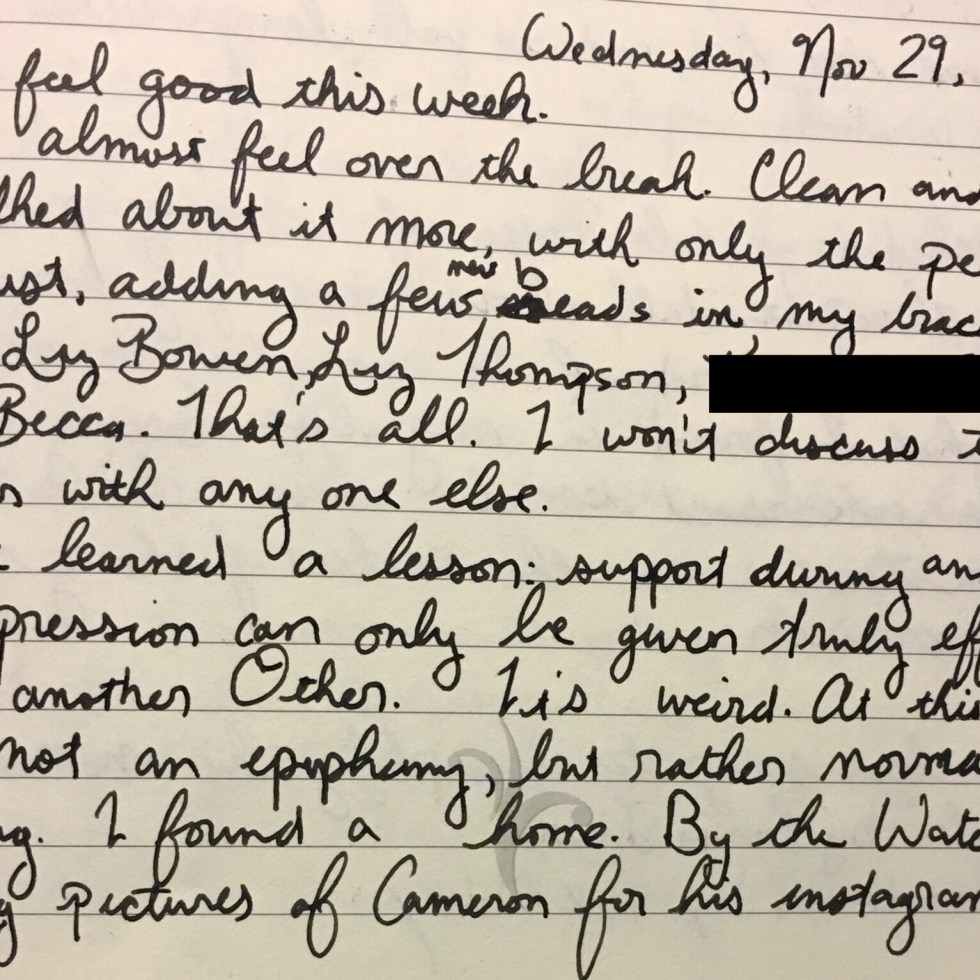 Wednesday, Nov 29,
feel good this week.
almost feel over the break. Clean and
lked about it more, with only the pe
ust, adding a few new beads in my brac
Liz Bowen, Liz Thompson,
Becca. That's all. I won't discuss t
s with any one else.
learned a lesson: support during an
pression can only be given truly eff
another Other. It's weird. At this
not an epiphany, but rather norma
ng. I found a home. By the Wat
g pictures of Cameron for his instagram